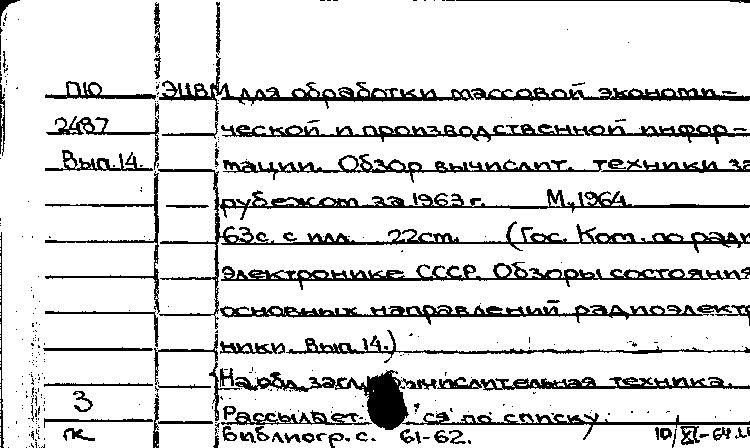 П10 ЭЦВМ для обработки массовой экономи-
2487 ческой и производственной инфор-
Вып.14. мации. Обзор вычислит. техники за
рубежом за 1963 г. М., 1964.
63с. с илл. 22см. (Гос. Ком. по ради
электронике СССР. Обзоры состояния
основных направлений радиоэлект
ники. Вып. 14.)
На обл. загл.: вычислительная техника.
3 Рассылает ся по списку.
пк Библиогр. с. 61-62. 10/XI-64.